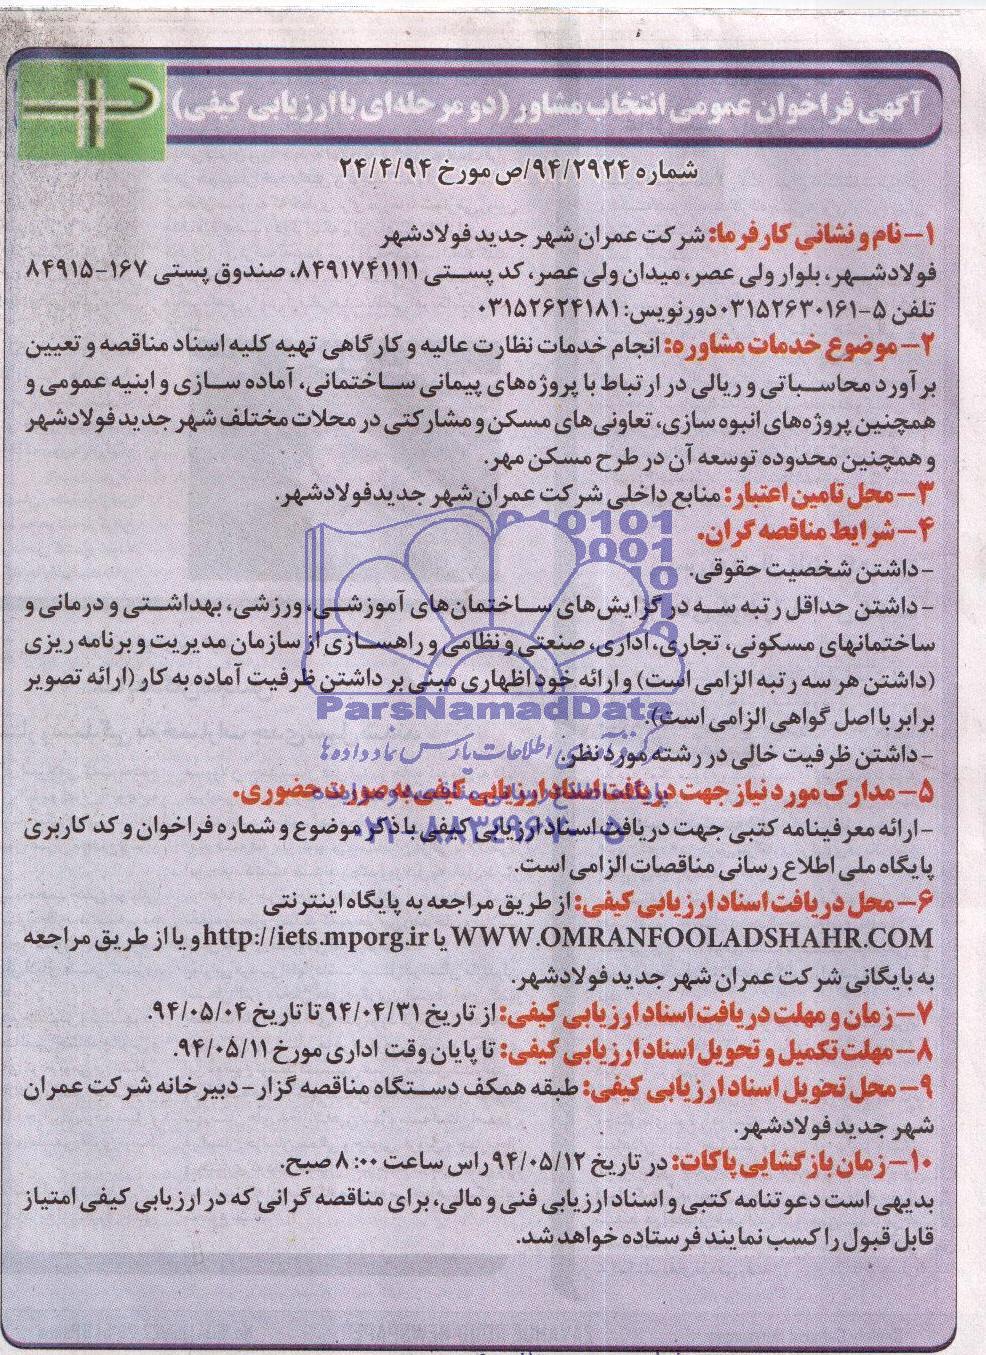 آگهی فراخوان عمومی انتخاب مشاور (دو مرحله‌ای با ارزیابی کیفی)
شماره ۹۴/۲۹۲۴/ص مورخ ۲۴/۴/۹۴
۱- نام و نشانی کارفرما: شرکت عمران شهر جدید فولادشهر
فولادشهر، بلوار ولی عصر، میدان ولی عصر، کد پستی ۸۴۹۱۷۴۱۱۱۱، صندوق پستی ۱۶۷-۸۴۹۱۵
تلفن ۵-۰۳۱۵۲۶۳۰۱۶۱ دورنویس: ۰۳۱۵۲۶۲۴۱۸۱
۲- موضوع خدمات مشاوره: انجام خدمات نظارت عالیه و کارگاهی تهیه کلیه اسناد مناقصه و تعیین
برآورد محاسباتی و ریالی در ارتباط با پروژه‌های پیمانی ساختمانی، آماده سازی و ابنیه عمومی و
همچنین پروژه‌های انبوه سازی، تعاونی‌های مسکن و مشارکتی در محلات مختلف شهر جدید فولادشهر
و همچنین محدوده توسعه آن در طرح مسکن مهر.
۳- محل تامین اعتبار: منابع داخلی شرکت عمران شهر جدید فولادشهر.
۴- شرایط مناقصه گران.
- داشتن شخصیت حقوقی.
- داشتن حداقل رتبه سه در گرایش‌های ساختمان‌های آموزشی، ورزشی، بهداشتی و درمانی و
ساختمانهای مسکونی، تجاری، اداری، صنعتی و نظامی و راهسازی از سازمان مدیریت و برنامه ریزی
(داشتن هر سه رتبه الزامی است) و ارائه خود اظهاری مبنی بر داشتن ظرفیت آماده به کار (ارائه تصویر
برابر با اصل گواهی الزامی است).
- داشتن ظرفیت خالی در رشته مورد نظر.
۵- مدارک مورد نیاز جهت دریافت اسناد ارزیابی کیفی به صورت حضوری.
- ارائه معرفینامه کتبی جهت دریافت اسناد ارزیابی کیفی با ذکر موضوع و شماره فراخوان و کد کاربری
پایگاه ملی اطلاع رسانی مناقصات الزامی است.
۶- محل دریافت اسناد ارزیابی کیفی: از طریق مراجعه به پایگاه اینترنتی
WWW.OMRANFOOLADSHAHR.COM یا http://iets.mporg.ir و یا از طریق مراجعه
به بایگانی شرکت عمران شهر جدید فولادشهر.
۷- زمان و مهلت دریافت اسناد ارزیابی کیفی: از تاریخ ۹۴/۰۴/۳۱ تا تاریخ ۹۴/۰۵/۰۴.
۸- مهلت تکمیل و تحویل اسناد ارزیابی کیفی: تا پایان وقت اداری مورخ ۹۴/۰۵/۱۱.
۹- محل تحویل اسناد ارزیابی کیفی: طبقه همکف دستگاه مناقصه گزار - دبیرخانه شرکت عمران
شهر جدید فولادشهر.
۱۰- زمان بازگشایی پاکات: در تاریخ ۹۴/۰۵/۱۲ راس ساعت ۸:۰۰ صبح.
بدیهی است دعوتنامه کتبی و اسناد ارزیابی فنی و مالی، برای مناقصه گرانی که در ارزیابی کیفی امتیاز
قابل قبول را کسب نمایند فرستاده خواهد شد.
ParsNamadData